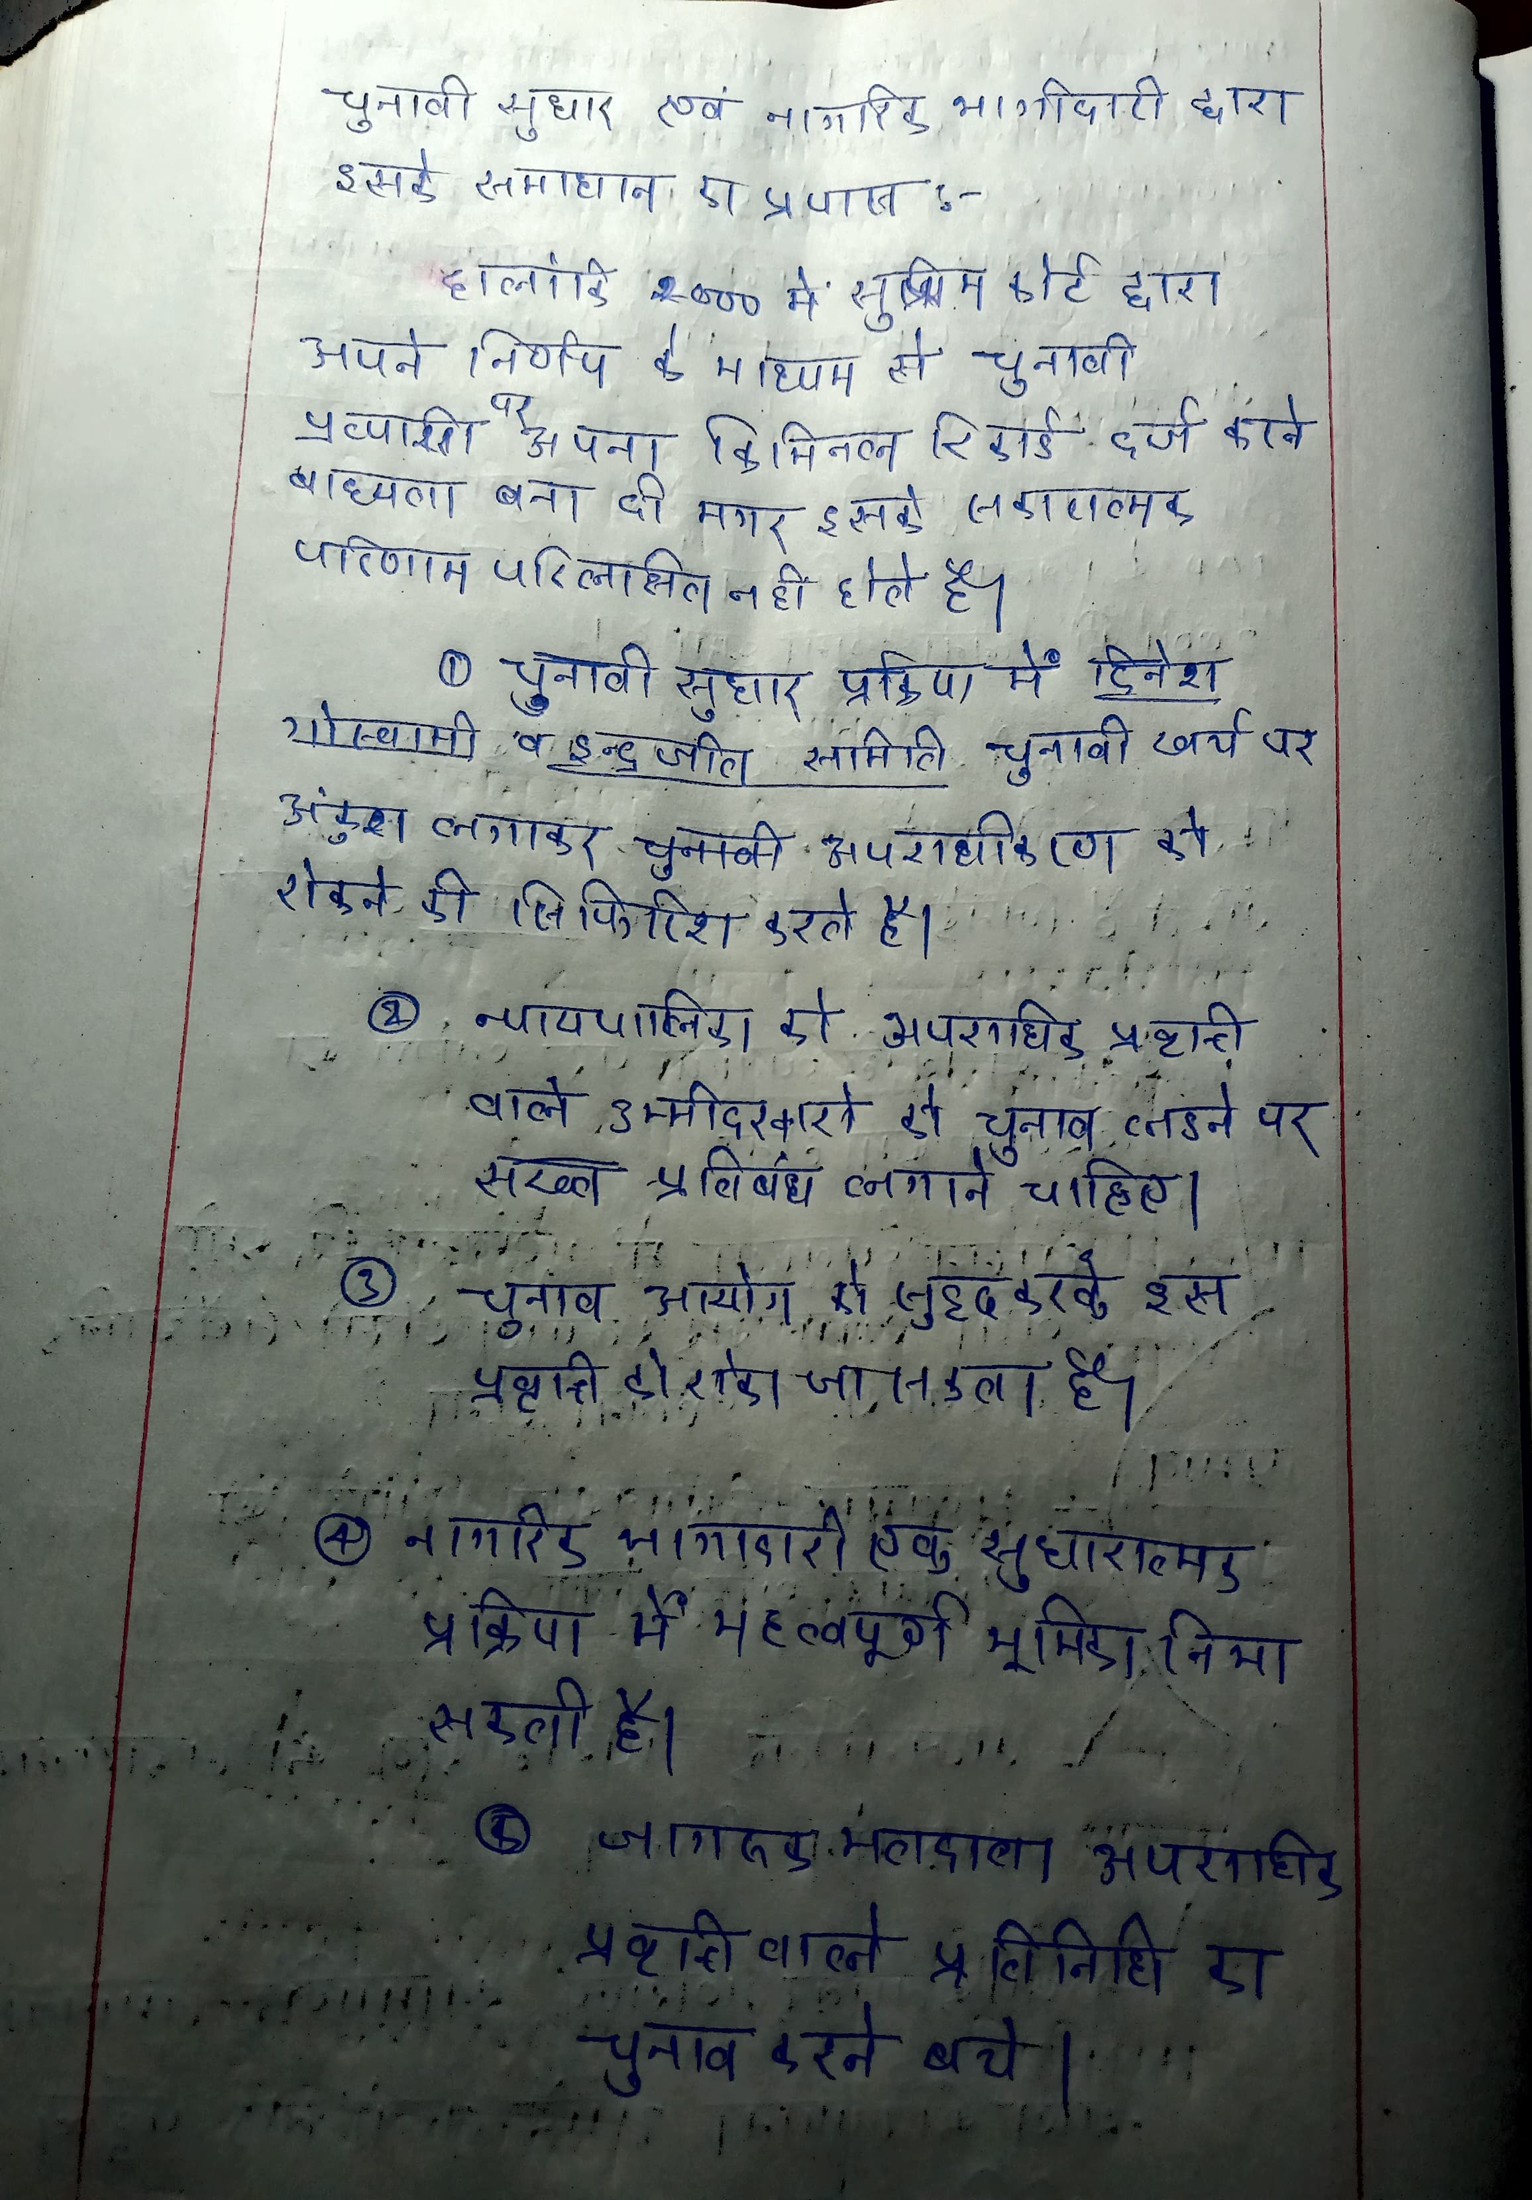 चुनावी सुधार एवं नागरिक भागीदारी द्वारा
इसके समाधान का प्रयास :-
हालांकि 2000 में सुप्रिम कोर्ट द्वारा
अपने निर्णय के माध्यम से चुनावी
प्रत्याशी पर अपना क्रिमिनल रिकार्ड दर्ज करने
बाध्यता बना दी मगर इसके सकारात्मक
परिणाम परिलक्षित नहीं होते है।
① चुनावी सुधार प्रक्रिया में दिनेश
गोस्वामी व इन्द्रजीत समिति चुनावी खर्च पर
अंकुश लगाकर चुनावी अपराधीकरण को
रोकने की सिफिारिश करते है।
② न्यायपालिका को अपराधिक प्रवृत्ति
वाले उम्मीदरवारो को चुनाव लडने पर
सख्त प्रतिबंध लगाने चाहिए।
③ चुनाव आयोग को सुदृढ करके इस
प्रवृत्ति को रोका जा सकता है।
④ नागरिक भागीदारी एक सुधारात्मक
प्रक्रिया में महत्वपूर्ण भूमिका निभा
सकती है।
⑤ जागरुक मतदाता अपराधिक
प्रवृत्ति वाले प्रतिनिधि का
चुनाव करने बचे।